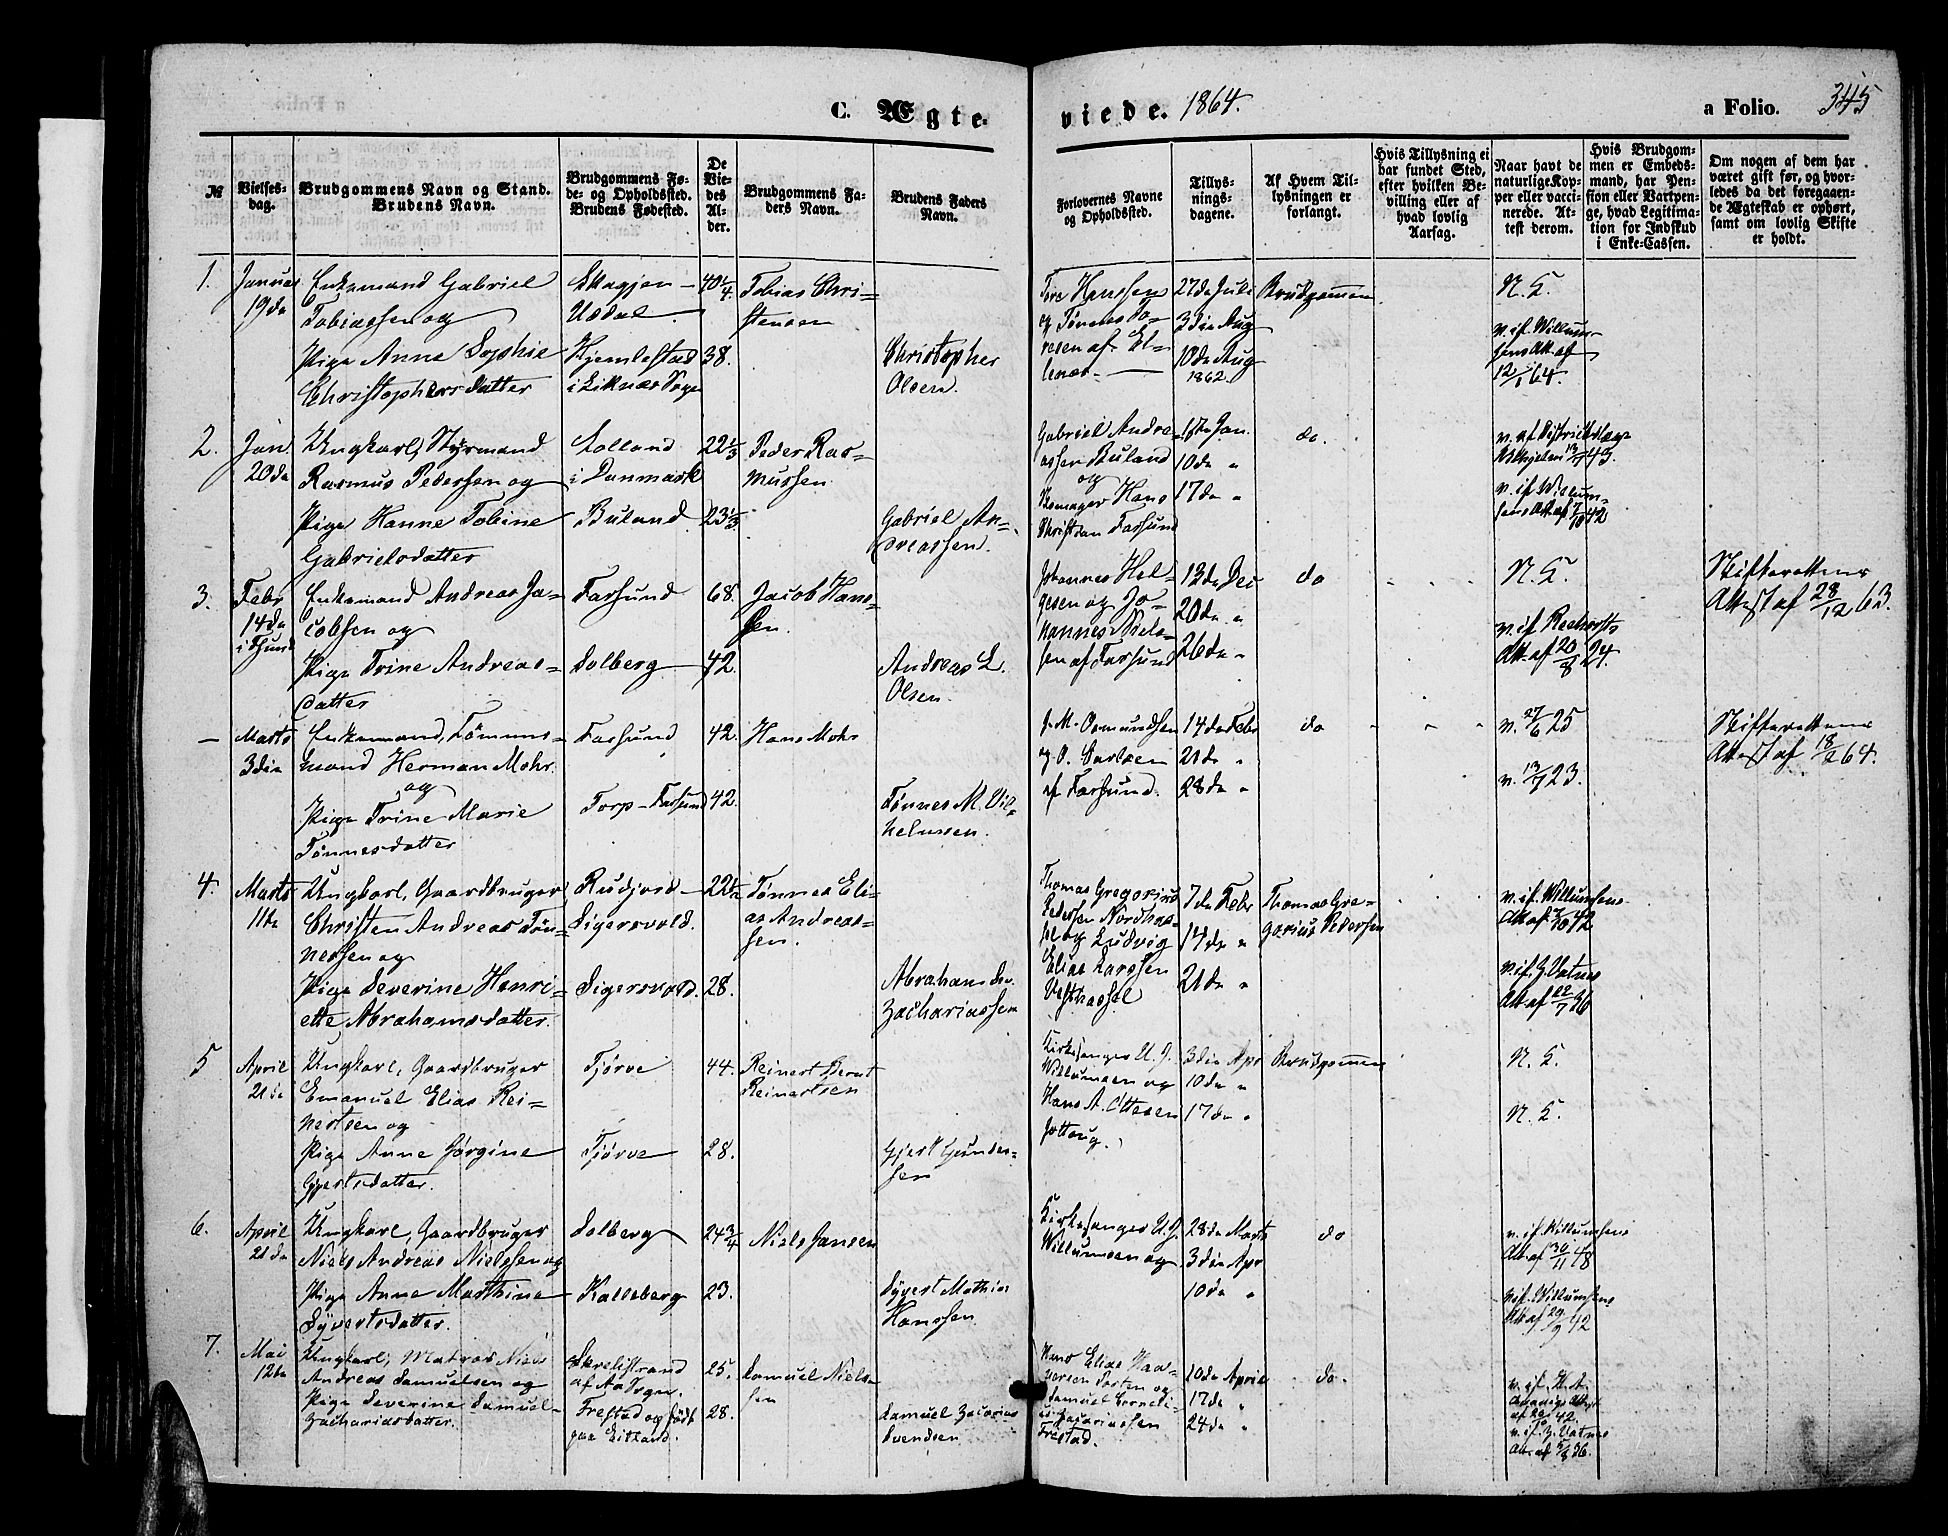 C. Ægte-
viede. 1864.
a Folio. 345
№
Vielses-
dag.
Brudgommens Navn og Stand.
Brudens Navn.
Brudgommens Fø-
de- og Opholdssted.
Brudens Fødested.
De
Vie-
des
Al-
der.
Brudgommens Fa-
ders Navn.
Brudens Faders
Navn.
Forlovernes Navne
og Opholdssted.
Tillys-
nings-
dagene.
Af Hvem Til-
lysningen er
forlangt.
Hvis Tillysning ei
har fundet Sted,
efter hvilken Be-
villing eller af
hvad lovlig
Aarsag.
Naar havt de
naturlige Kop-
per eller vacci-
nerede. At-
test derom.
Hvis Brudgom-
men er Embeds-
mand, har Pen-
sion eller Vartpen-
ge, hvad Legitima-
tion for Indskud
i Enke-Cassen.
Om nogen af dem har
været gift før, og hvor-
ledes da det foregaaen-
de Ægteskab er ophørt,
samt om lovlig Skifte
er holdt.
1.
Januar
19de
Enkemand Gabriel
Tobiassen og
Pige Anne Sophie
Christophersdatter
Skagjen -
Usdal
Hjemlestad
i Liknæs Sogn
40 1/4
38.
Tobias Chri-
stensen
Christopher
Olsen.
Tore Hanssen
og Tønnes To-
resen af El-
lenæs
27de Juli
3die Aug
10de Aug
1862.
Brudgommen.
N. E.
v. if. Willum-
sens Att. af
12/1 64.
2.
Jan.
20de
Ungkarl, Styrmand
Rasmus Pedersen og
Pige Hanne Tobine
Gabrielsdatter
Lolland
i Danmark
Buland
22 1/3
23 1/3
Peder Ras-
mussen
Gabriel An-
dreassen.
Gabriel Andre-
assen Buland
og
Hans
Christian Farsund
Jan.
10de "
17de "
do.
v. af Districtslæge
13/7 43.
v. if Willum-
sens Att. af 7/10 42
3.
Febr
14de
Enkemand Andreas Ja-
cobsen og
Pige Trine Andreas-
datter
Farsund
Solberg
68.
42.
Jacob Hans-
sen.
Andreas L.
Olsen.
Johannes Hel-
gesen og Jo-
hannes Niels-
sen af Farsund
13de Dec
20de "
26de "
do
N. E.
v. if
Att. af 20/8 24.
Skifterettens
Attest af 28/12 63.
—
Marts
3die
Enkemand, Tømmer-
mand Herman Mohr
og
Pige Trine Marie
Tønnesdatter
Farsund
Torp - Farsund
42.
42.
Hans Mohr
Tønnes M. Vil-
helmsen.
J. M. Osmundsen
og O. Carlsen
af Farsund.
14de Febr
21de "
28de "
do
v. 27/6 25
v. 13/7 23.
Skifterettens
Attest af 18/2 64.
4.
Marts
11te
Ungkarl, Gaardbruger,
Christen Andreas Tøn-
nessen og
Pige Severine Henri-
ette Abrahamsdatter.
Rudjord -
Sigersvold.
Sigersvold.
22 1/2
28.
Tønnes Eli-
as Andreas-
sen.
Abraham Sev.
Zachariassen
Thomas Gregorius
Pedersen Nordhas-
sel og Ludvig
Elias Larssen
Vesthassel
7de Febr
14de "
21de "
Thomas Gre-
gorius Pedersen
v. if. Willumsens
Att. af 7/10 42
v. if. Z. Vatnes
Att. af 22/7 36
5
April
21de
Ungkarl, Gaardbruger
Emanuel Elias Rei-
nertsen og
Pige Anne Jørgine
Gjertsdatter.
Tjørve
Tjørve
44.
28.
Reinert Bernt
Reinertsen
Gjert Gunder-
sen
Kirkesanger U. J.
Willumsen og
Hans A. Ottesen
3die Apr
10de "
17de "
Brudgommen
N. E.
N. E.
6.
April
21de
Ungkarl, Gaardbruger
Niels Andreas Nielssen og
Pige Anne Marthine
Syvertsdatter.
Solberg
Kalleberg
24 3/4
23.
Niels Jansen
Syvert Mathias
Hanssen.
Kirkesanger U. J.
Willumsen og
28de Marts
3die Apr
10de "
do
v. if. Willumsens
Att. af 30/11 48
v. if. Willumsens
Att. af 29/9 42
7.
Mai
12te
Ungkarl, Matros Niels
Andreas Samuelsen og
Pige Severine Samuel-
Zachariasdatter.
Skrelistrand
af Aa Sogn.
Frestad og født
paa Eitland.
25.
28.
Samuel Niels-
sen
Samuel Zacarias
Svendsen
Hans Elias Haa-
versen Sorten og
Samuel Corneli-
us Zacariassen
Frestad.
10de April
17de "
24de "
do.
v. if. H. A.
af 20/10 42.
v. if. Z. Vatnes
Att. af 5/8 36.